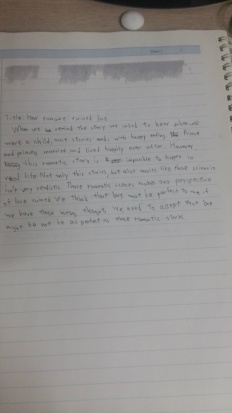 Title: How
When we remind the story we used to hear when we
were a child, most stories ends with happy ending. The Prince
and princess married and lived happily ever after. However
this romantic story is impossible to happen in
real life. Not only this story, but also movies like those scenario
isn't very realistic. These romantic makes our perspective
of love ruined. We think that boy must be perfect to me if
we have these wrong thought. We need to accept that boy
might be not be as perfect as these romantic story.